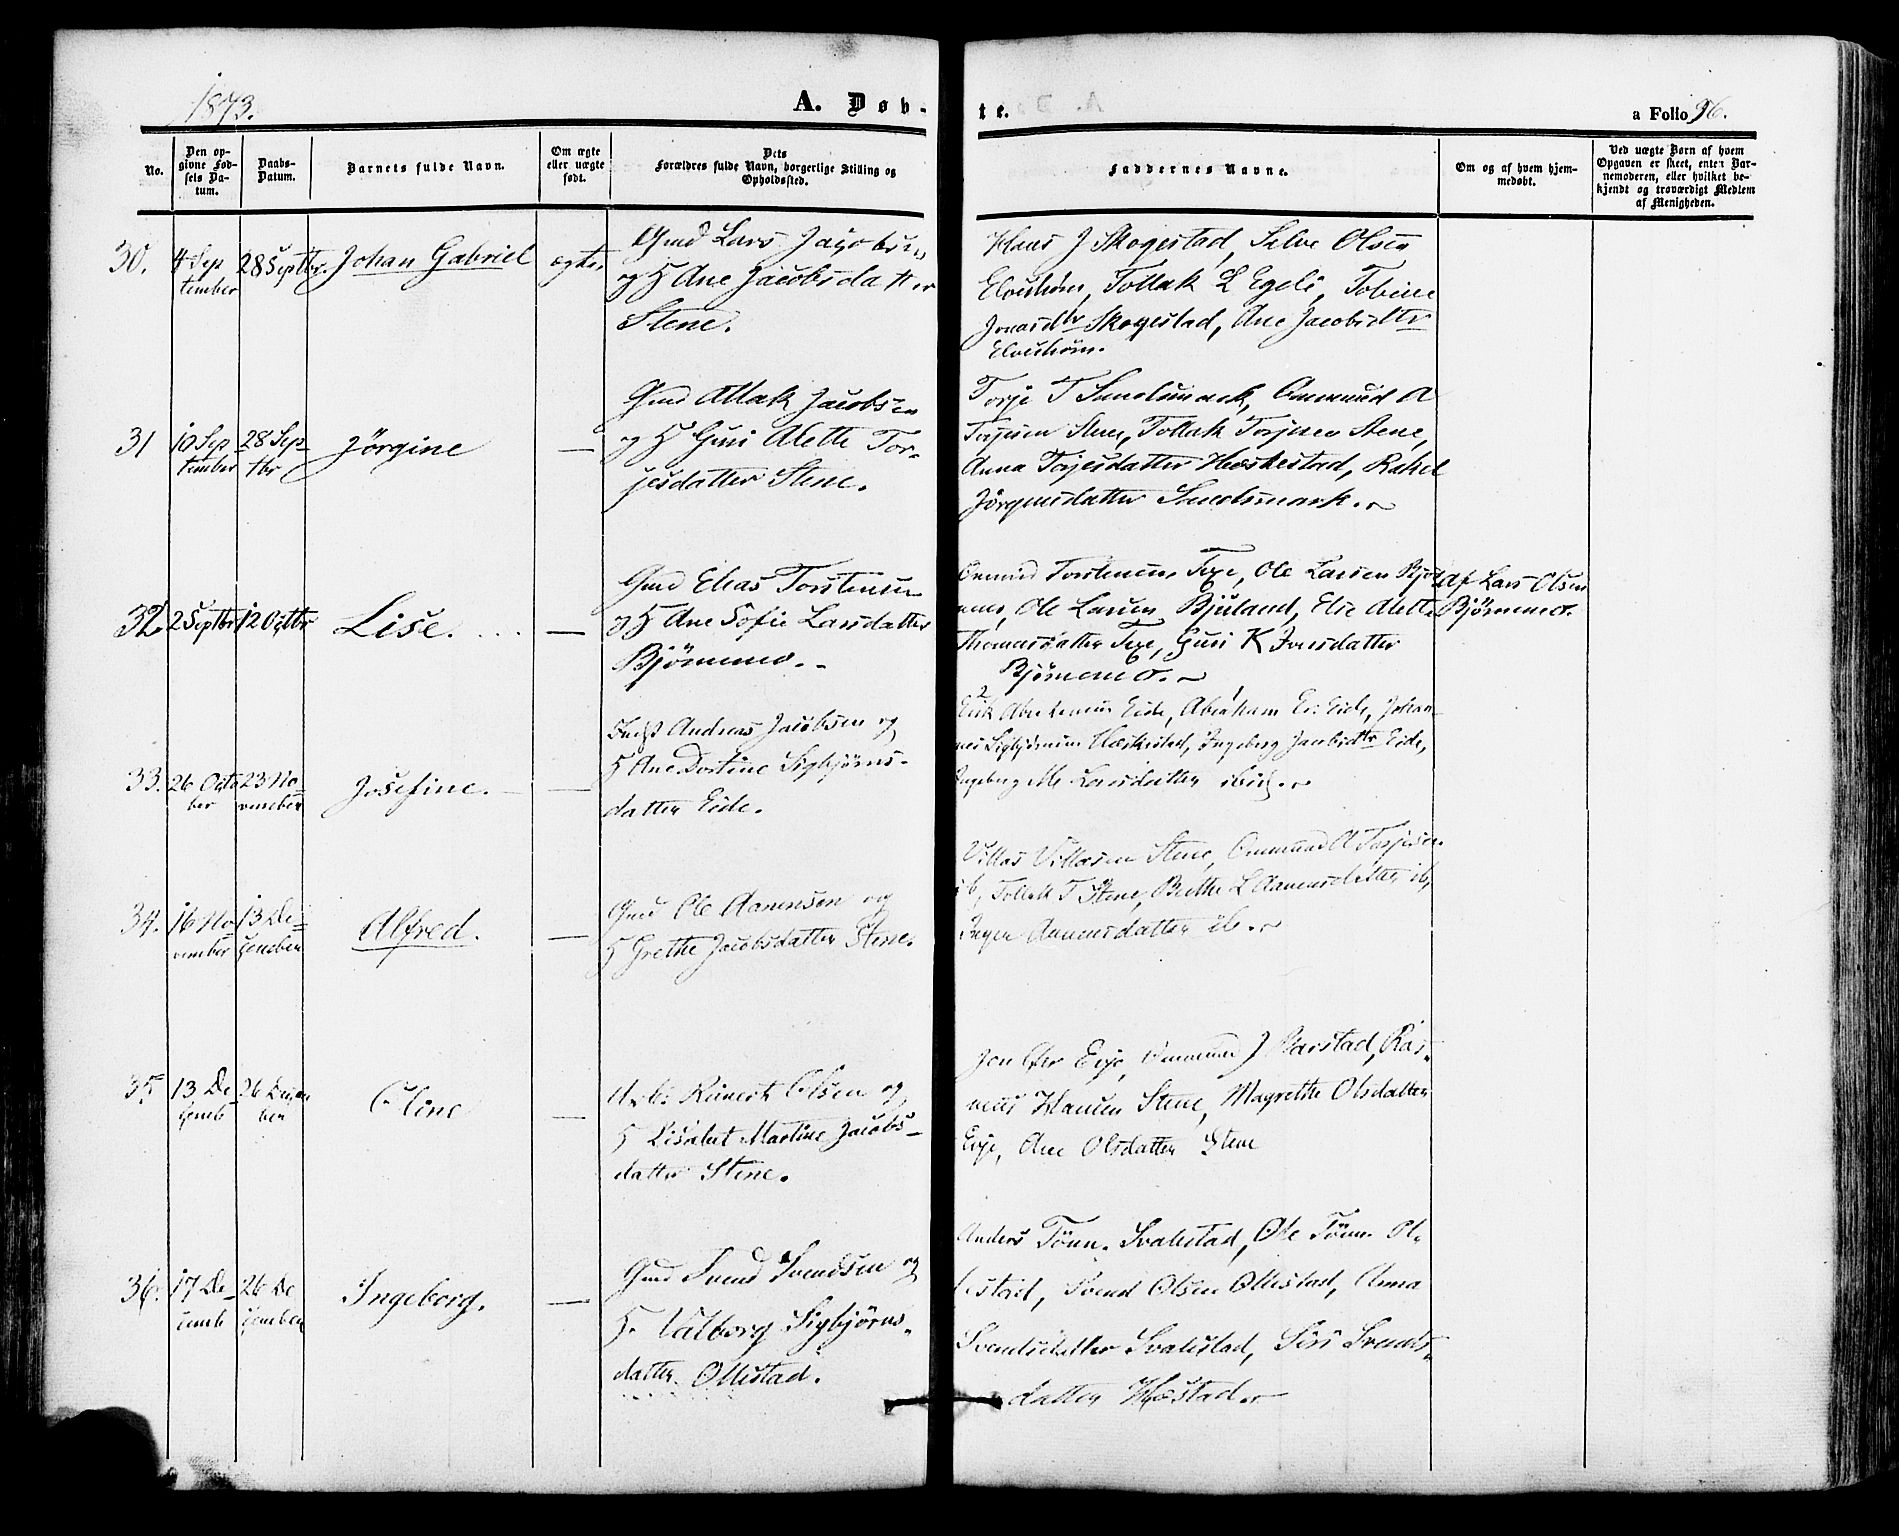 1873.
A. Døb-
te.
a Folio 96.
No.
Den op-
givne Fød-
sels Da-
tum.
Daabs-
Datum.
Barnets fulde Navn.
Om ægte
eller uægte
født.
Dets
Forældres fulde Navn, borgerlige Stilling og
Opholdssted.
Faddernes Navne.
Om og af hvem hjem-
medøbt.
Ved uægte Børn af hvem
Opgaven er skeet, enten Bar-
nemoderen, eller hvilket be-
kjendt og troværdigt Medlem
af Menigheden.
30.
4 Sep
tember
28 Septbr.
Johan Gabriel
ægte
Gmd Lars Jacobsen
og H Ane Jacobsdatter
Stene.
Hans J Skogestad, Selve Olsen
Tollak L Egeli, Tobine
Jonasdtr Skogestad, Ane Jacobsdtr
31
10 Sep
tember
28 Sep-
tbr
Jörgine
—
Gmd Atlak Jacobsen
og H Guri Alette Tor-
jesdatter Stene.
Torje T Snoelsmark, Ommund A
Torjesen Stene, Tollak Torjesen Stene,
Anna Torjesdatter Hæskestad, Rakel
Jörgensdatter
32.
2 Septbr
12 Octbr
Lise.
—
Gmd Elias Torstensen
og H Ane Sofie Larsdatter
Björnemo.
Ommund Torstensen Ole Larsen Björ
nemo, Ole Larsen Bjuland, Elie Alette
Thomasdatter Guri K Iversdatter
Björnemo.
Af Lars Olsen
Björnemo.
33.
26 Octo
ber
23 No-
vember
Josefine.
—
Indst Andreas Jacobsen og
H Ane Dortine Sigbjörns-
datter Eide.
Erik Abrahamsen Eide, Abraham Er. Eide, Johan-
nes Sigbjörnsen Hæskestad, Ingeborg Jacobsdtr Eide,
Ingeborg M. Larsdatter ibid.
34.
16 No
vember
13 De-
cember
Alfred.
—
Gmd Ole Aanensen og
H Grethe Jacobsdatter Stene.
Villas Villasen Stene, Ommund A Torjesen
ib, Tollak T Stene, Berthe L Aanensdatter ib,
Inger Aanensdatter ib.
35
13 De
cemb
26 Decem
ber
Oline
—
Reinert Olsen og
H Lisabet Martine Jacobs-
datter Stene.
Jon Eeje, Ommund J Barstad, Ras-
mus Hansen Stene, Magrethe Olsdatter
Eeje, Ane Olsdatter Stene
36.
17 De-
cemb
26 De
cember
Ingeborg.
—
Gmd Svend Svendsen og
H. Valborg Sigbjörns-
datter Ollestad.
Anders Tönn. Svalestad, Ole Tönn. Ol-
lestad, Svend Olsen Ollestad, Anna
Svendsdatter Svalestad, Siri Svends-
datter Hæstad.